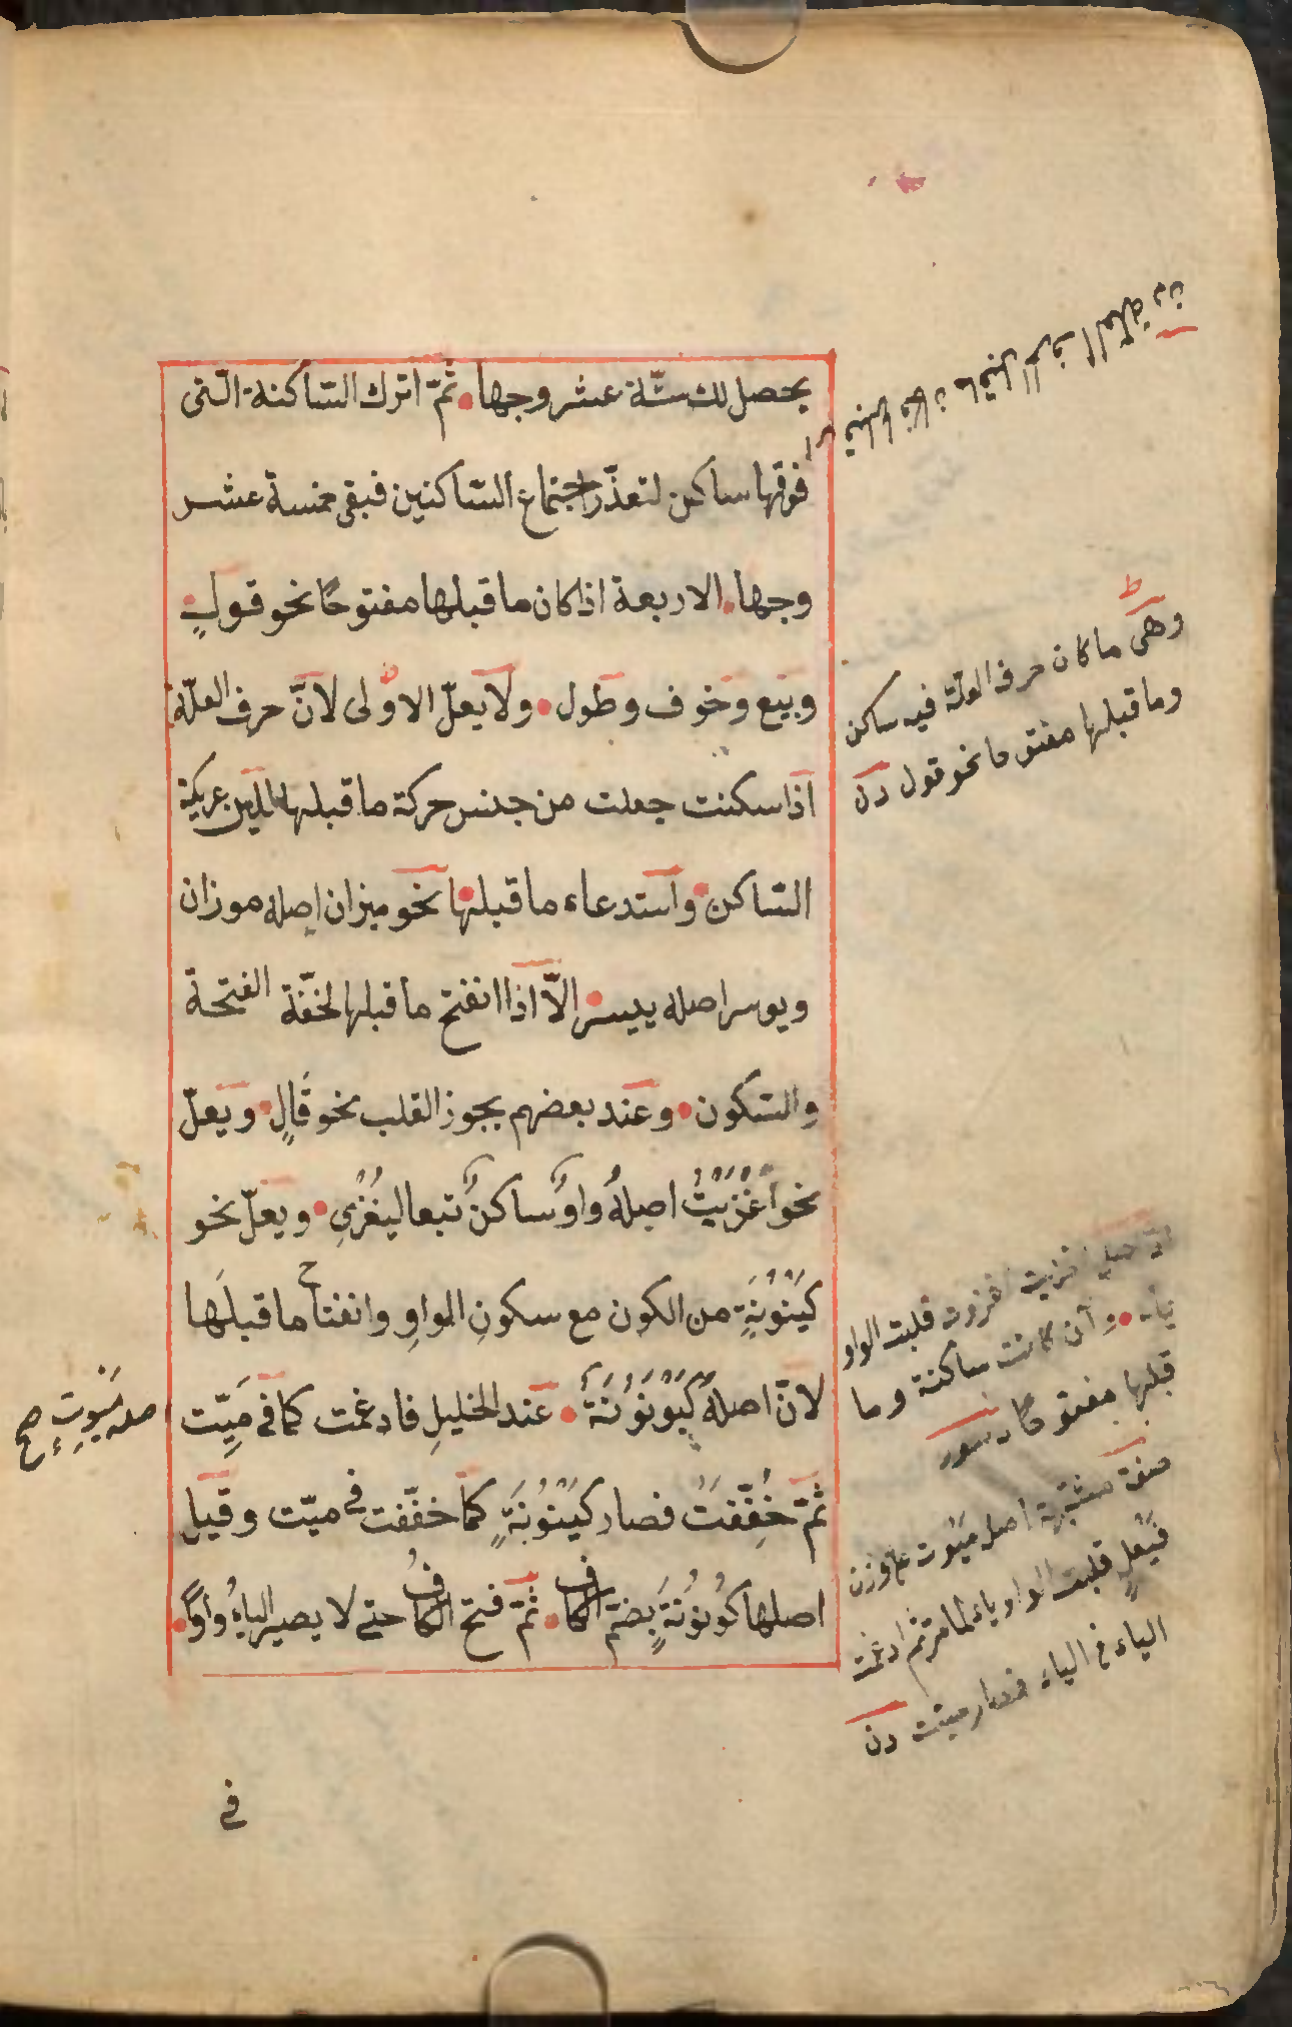 يحصل لك ستّة عشر وجها ثمّ اترك الساكنة الّتى
فوقها ساكن لتعذّر اجتماع الساكنين فبقى خمسة عشر
وجها الاربعة اذا كان ما قبلها مفتوحًا نحو قولٍ
وبيع وخوف وطول ولا يعلّ الاوْلى لانّ حرف العلّة
اذا سكنت جعلت من جنس حركة ما قبلها للين عريكة
الساكن واستدعاء ما قبلها نحو ميزان اصله موزان
ويوسر اصله ييسر الّا اذا انفتح ما قبلها لخفّة الفتحة
والسكون وعند بعضهم يجوز القلب نحو قَالٍ ويعلّ
نحو اَغْزَيْتُ اصلهُ واوٌ ساكنٌ تبعا ليُغْزِى ويعلّ نحو
كَيْنُوْنَةٍ من الكون مع سكونِ الواوِ وانفتاح ما قبلَها
لانّ اصلهُ كَيْوَنُوْنَةٌ عند الخليلِ فادغمت كما فى مَيِّت
ثمّ خُفِّفَتْ فصار كَيْنُوْنَةٍ كما خفّفت فى ميّت وقيل
اصلها كُوْنُوْنَةٍ بضمّ الكاف ثمّ فتح الكافُ حتى لا يصير الياءُ واوًا
فى
وهى ما كان حرف العلّة فيه ساكن
وما قبلها مفتوحا نحو قول
اغزيت اغزوت قلبت الواو
ياء وان كانت ساكنة وما
قبلها مفتوحًا
صفة مشبّهة اصل ميوت على وزن
فَيْعِلٍ قلبت الواو ياء لما مرّ ثم ادغمت
الياء فى الياء فصار ميّت
مَيْوِتٍ صح